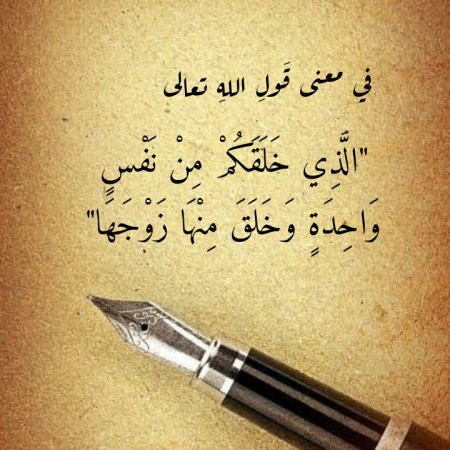 في معنى قَولِ اللهِ تعالى
"الَّذِي خَلَقَكُمْ مِنْ نَفْسٍ
وَاحِدَةٍ وَخَلَقَ مِنْهَا زَوْجَهَا"